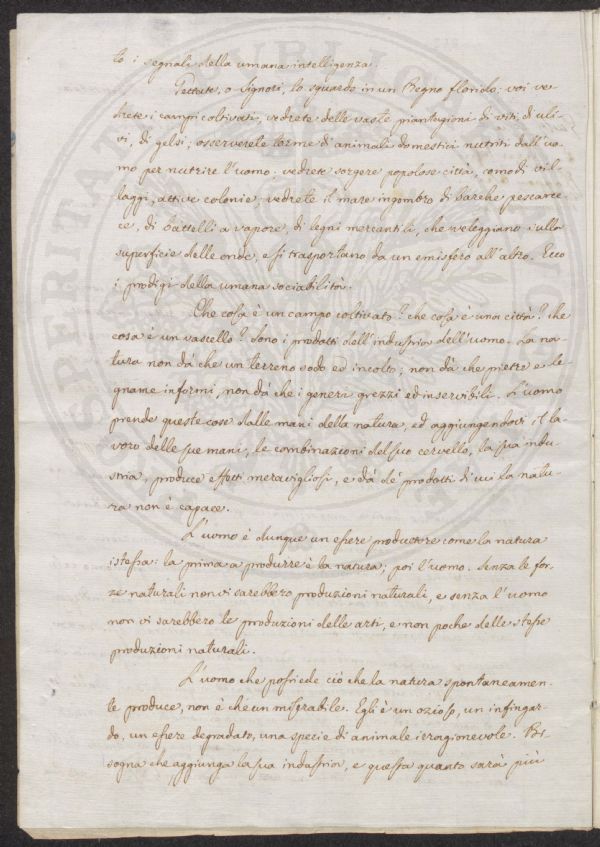 to i segnali della umana intelligenza.
Gettate, o Signori, lo sguardo in un Regno florido: voi ve-
drete i campi coltivati, vedrete delle vaste piantagioni di viti, di uli-
vi, di gelsi; osserverete torme di animali domestici nutriti dall'uo-
mo per nutrire l'uomo: vedrete sorgere popolose città, comodi vil-
laggi, attive colonie; vedrete il mare ingombro di barche pescarec-
ce, di battelli a vapore, di legni mercantili, che veleggiano sulla
superficie delle onde, e si trasportano da un emisfero all'altro. Ecco
i prodigi della umana sociabilità.
Che cosa è un campo coltivato? che cosa è una città? che
cosa è un vascello? Sono i prodotti dell'industria dell'uomo. La na-
tura non dà che un terreno sodo ed incolto; non dà che pietre e le-
gname informi, non dà che i generi grezzi ed inservibili. L'uomo
prende queste cose dalle mani della natura, ed aggiungendovi il la-
voro delle sue mani, le combinazioni del suo cervello, la sua indu-
stria, produce effetti meravigliosi, e dà de' prodotti di cui la natu-
ra non è capace.
L'uomo è dunque un essere produttore come la natura
istessa: la prima a produrre è la natura; poi l'uomo. Senza le for-
ze naturali non vi sarebbero produzioni naturali, e senza l'uomo
non vi sarebbero le produzioni delle arti, e non poche delle stesse
produzioni naturali.
L'uomo che possiede ciò che la natura spontaneamen-
te produce, non è che un miserabile. Egli è un ozioso, un infingar-
do, un essere degradato, una specie di animale irragionevole. Bi-
sogna che aggiunga la sua industria, e questa quanto sarà più